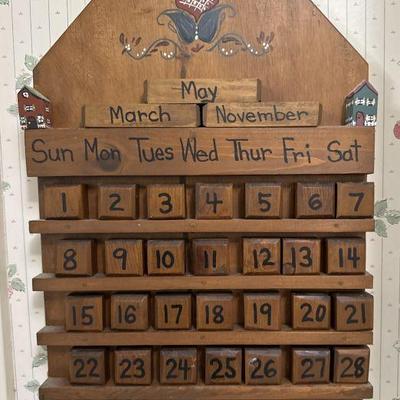 May
March November
Sun Mon Tues Wed Thur Fri Sat
1 2 3 4 5 6 7
8 9 10 11 12 13 14
15 16 17 18 19 20 21
22 23 24 25 26 27 28